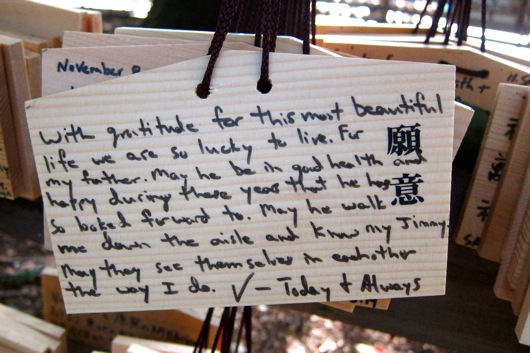 November 8
With gratitude for this most beautiful
life we are so lucky to live. For
my father. May he be in good health and
happy during these years that he has
so looked forward to. May he walk
me down the aisle and know my Jimmy.
May they see themselves in eachother
the way I do. √ – Today & Always
願意